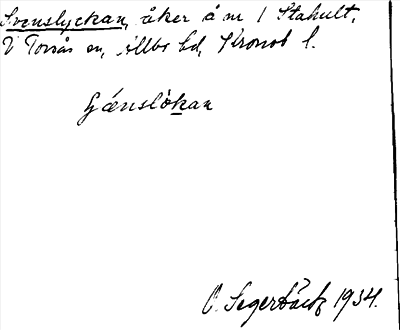 Svenslyckan, åker å nr 1 Stahult,
V Torsås sn, Allbo hd, Kronob l.
svænslòkan
O. Segerbäck 1934.